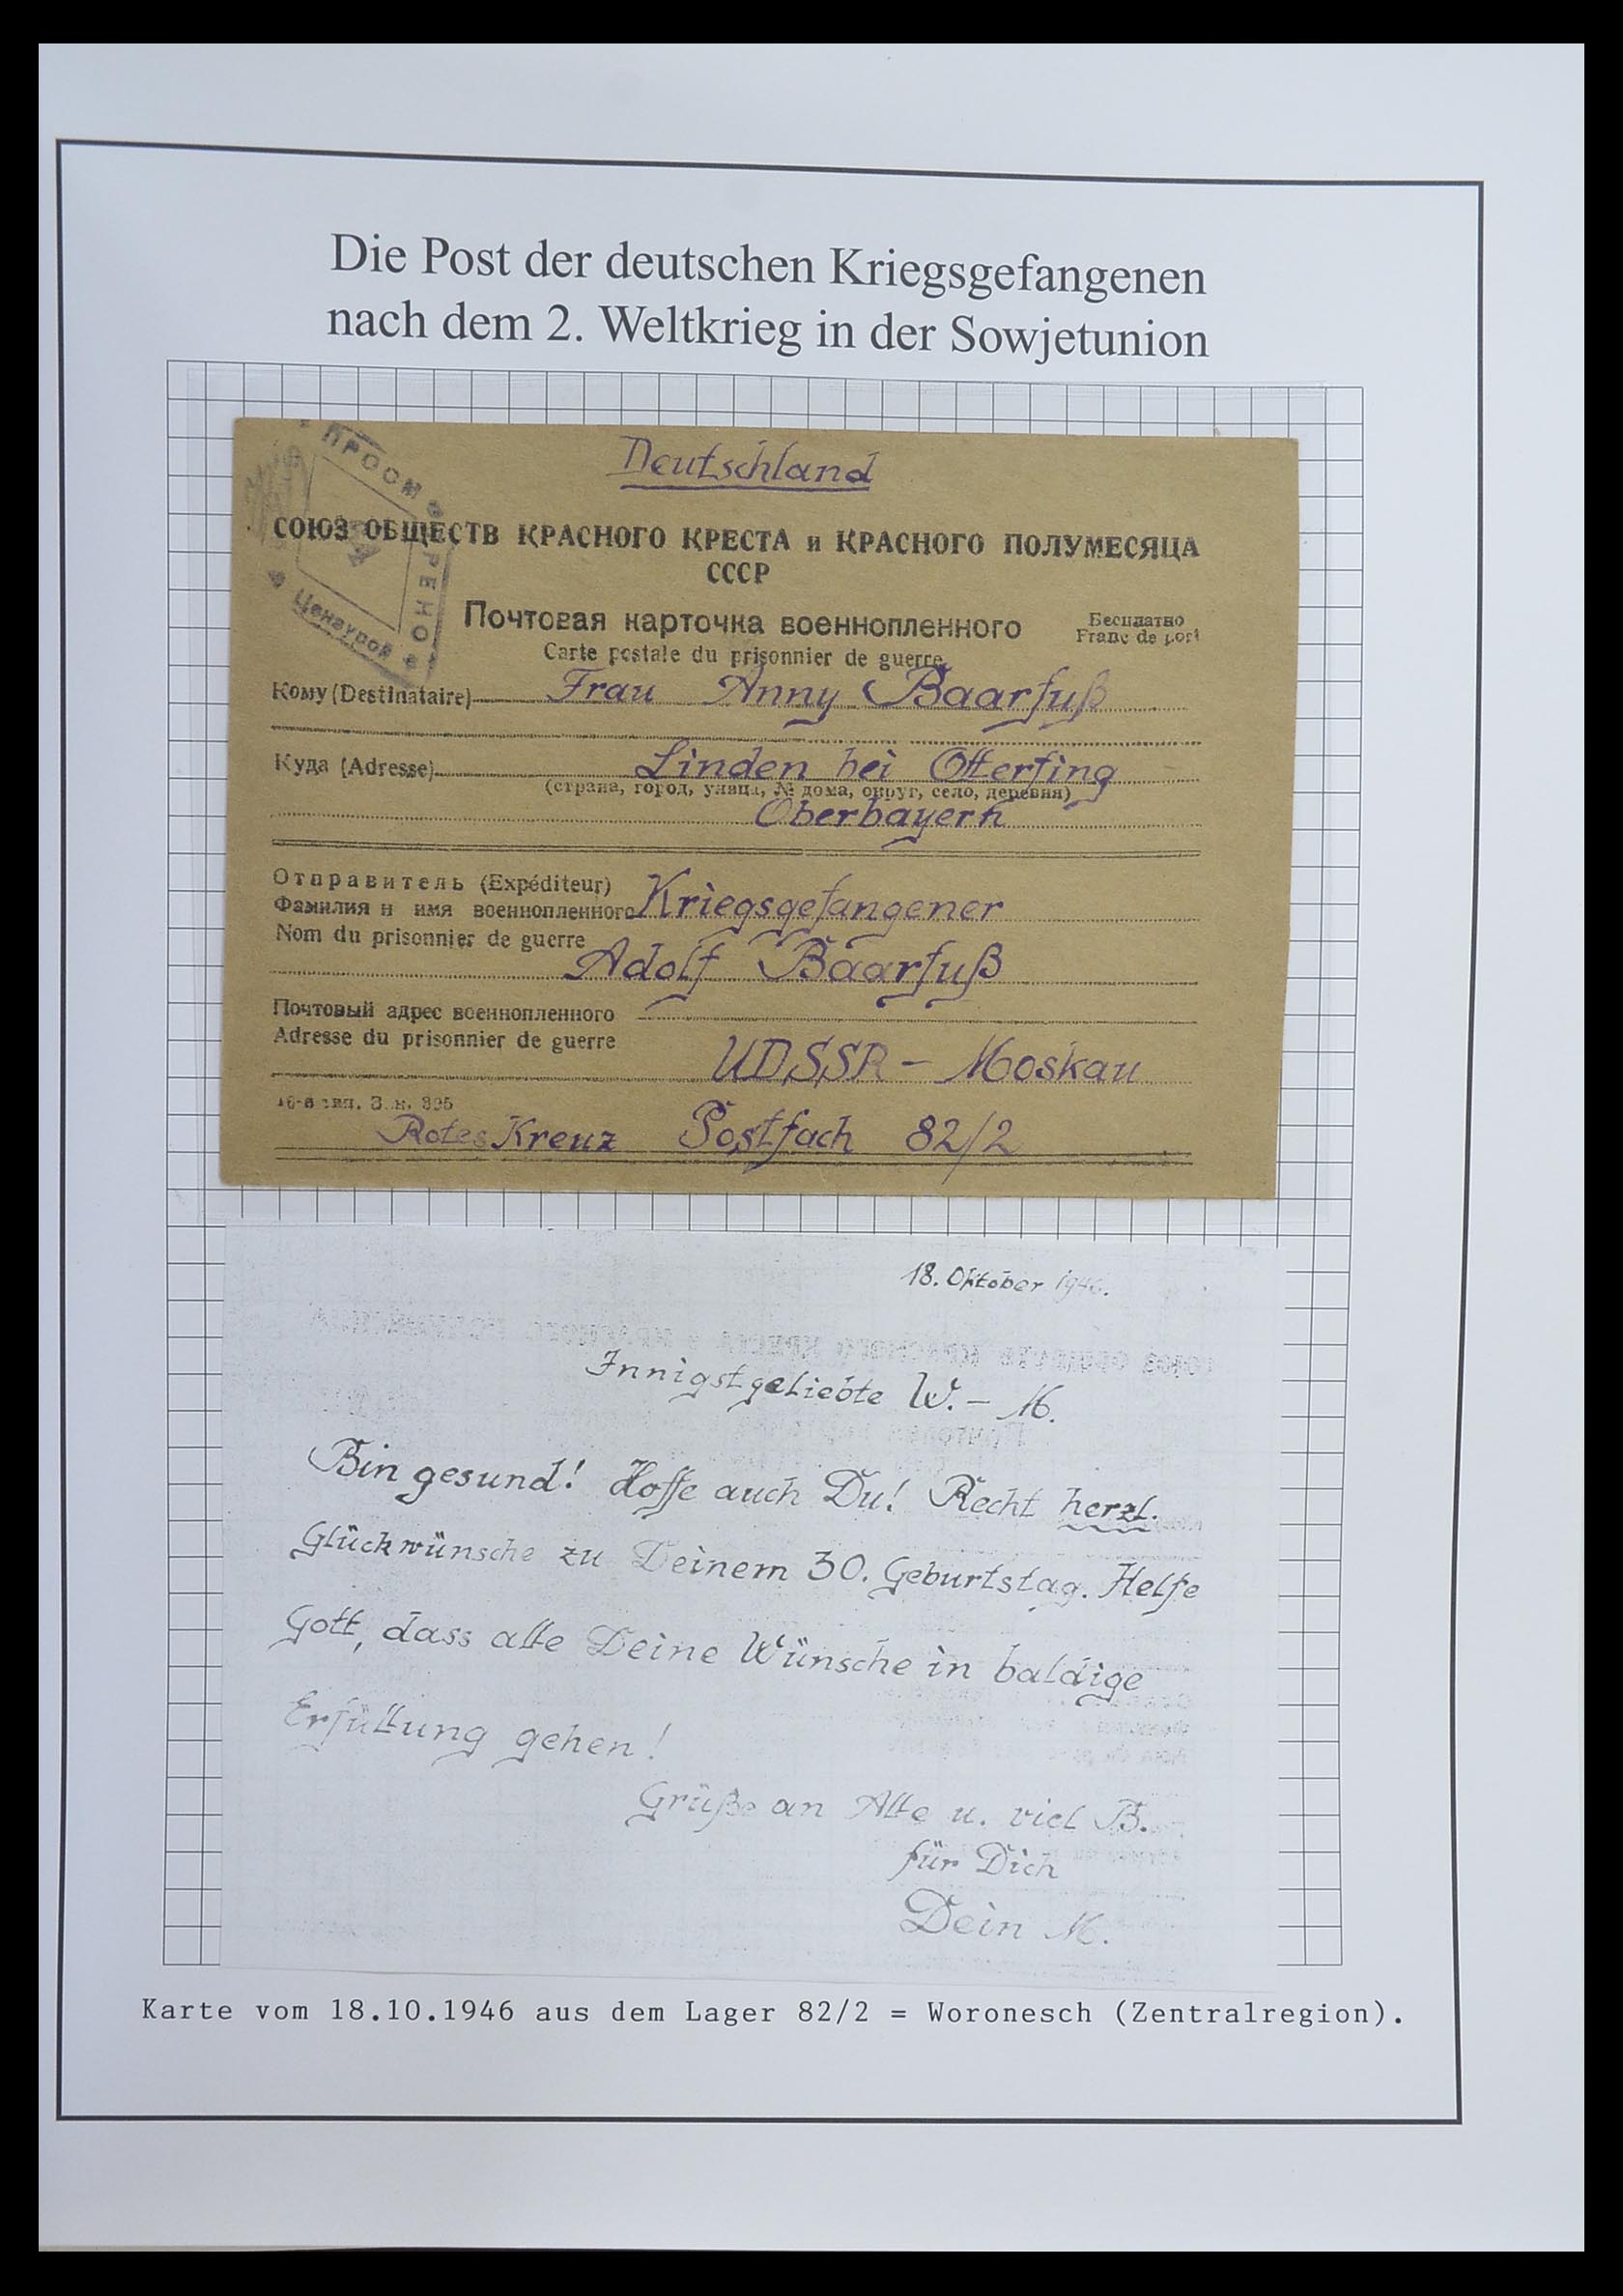 Die Post der deutschen Kriegsgefangenen
nach dem 2. Weltkrieg in der Sowjetunion
Deutschland
ПРОСМ
РЕНО
Цензурой
СОЮЗ ОБЩЕСТВ КРАСНОГО КРЕСТА и КРАСНОГО ПОЛУМЕСЯЦА
СССР
Почтовая карточка военнопленного
Бесплатно
Carte postale du prisonnier de guerre
Franc de port
Кому (Destinataire) Frau Anny Baarfuß
Куда (Adresse) Linden bei Otterfing
(страна, город, улица, № дома, округ, село, деревня)
Oberbayern
Отправитель (Expéditeur)
Фамилия и имя военнопленного Kriegsgefangener
Nom du prisonnier de guerre
Adolf Baarfuß
Почтовый адрес военнопленного
Adresse du prisonnier de guerre
UDSSR - Moskau
16-я тип. Зак. 395
Rotes Kreuz Postfach 82/2
18. Oktober 1946.
Innigstgeliebte W. - M.
Bin gesund! Hoffe auch Du! Recht herzl.
Glückwünsche zu Deinem 30. Geburtstag. Helfe
Gott, dass alle Deine Wünsche in baldige
Erfüllung gehen!
Grüße an Alle u. viel B.
für Dich
Dein M.
Karte vom 18.10.1946 aus dem Lager 82/2 = Woronesch (Zentralregion).